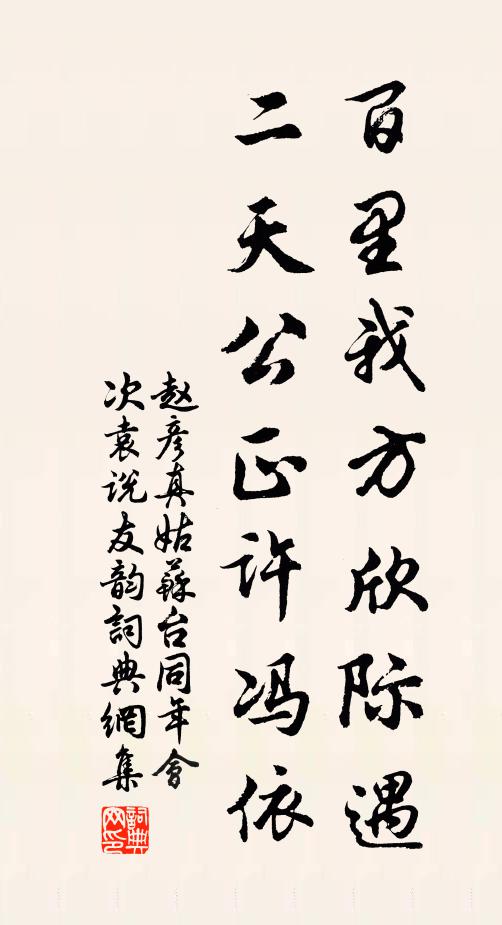 百里我方欣际遇
二天公正许冯依
赵彦真姑蘇台同年會
次袁说友韵詞典網集
詞典網印